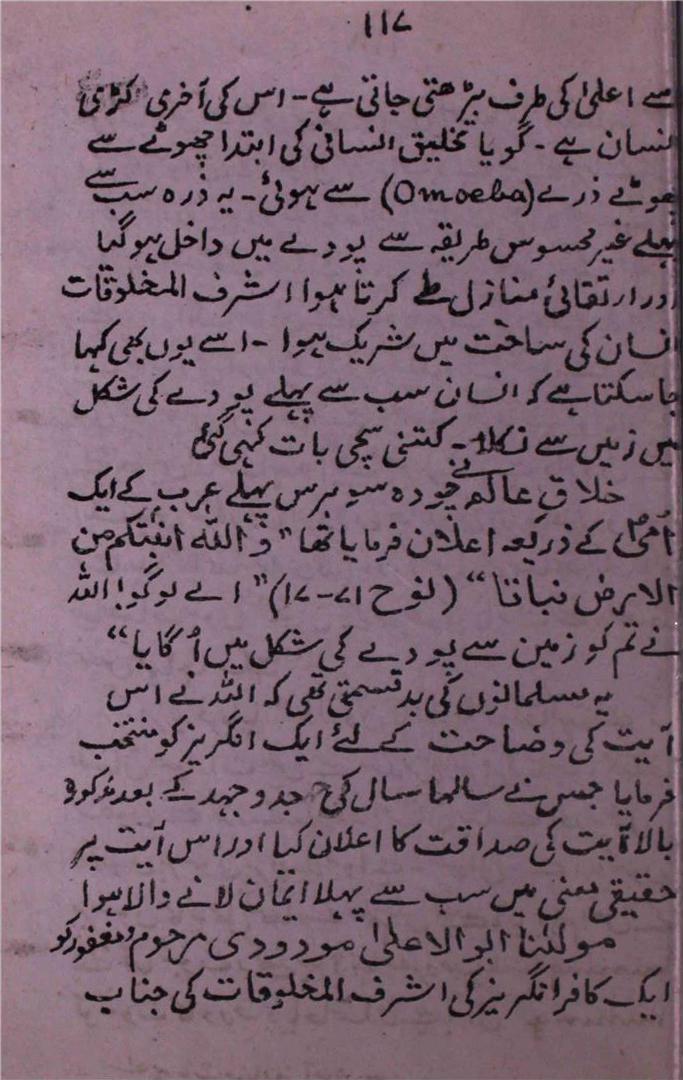 ۱۱۷
سے اعلیٰ کی طرف بڑھتی جاتی ہے۔ اس کی آخری کڑی
انسان ہے۔ گویا تخلیق انسانی کی ابتدا چھوٹے سے
چھوٹے ذرے (Omoeba) سے ہوئی۔ یہ ذرہ سب سے
پہلے غیر محسوس طریقہ سے پودے میں داخل ہو گیا
اور ارتقائی منازل طے کرتا ہوا اشرف المخلوقات
انسان کی ساخت میں شریک ہوا۔ اسے یوں بھی کہا
جا سکتا ہے کہ انسان سب سے پہلے پودے کی شکل
میں زمین سے نکلا۔ کتنی سچی بات کہی گئی
خلاق عالم نے چودہ سو برس پہلے عرب کے ایک
اُمّی کے ذریعہ اعلان فرمایا تھا "وَاللہ انبتکم من
الارض نباتا" (نوح ۷۱-۱۷) "اے لوگو! اللہ
نے تم کو زمین سے پودے کی شکل میں اُگایا"
یہ مسلمانوں کی بدقسمتی تھی کہ اللہ نے اس
آیت کی وضاحت کے لئے ایک انگریز کو منتخب
فرمایا جس نے سالہا سال کی جد و جہد کے بعد مذکورہ
بالا آیت کی صداقت کا اعلان کیا اور اس آیت پر
حقیقی معنی میں سب سے پہلا ایمان لانے والا ہوا
مولٰنا ابوالاعلیٰ مودودی مرحوم و مغفور کو
ایک کافر انگریز کی اشرف المخلوقات کی جناب